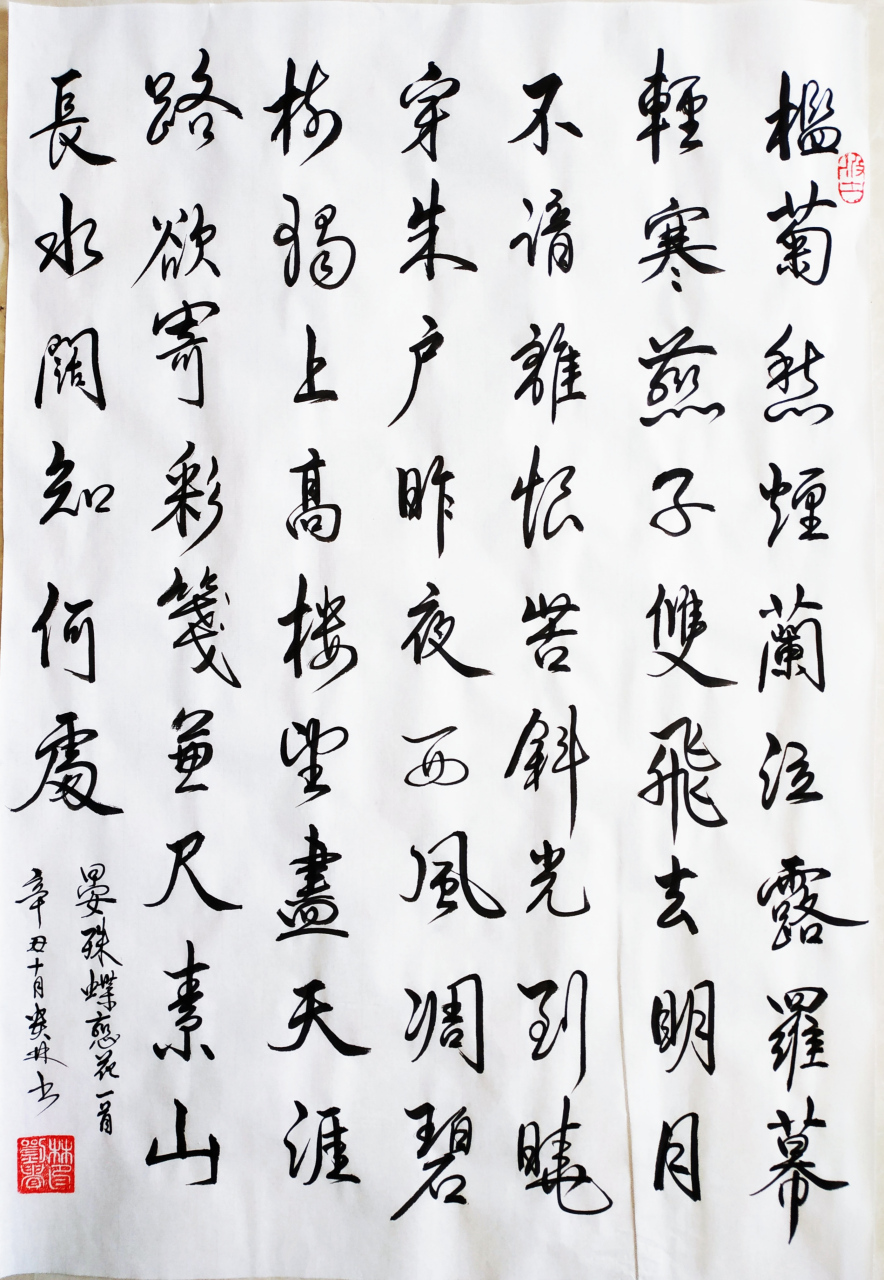 檻菊愁煙蘭泣露羅幕
輕寒燕子雙飛去明月
不諳離恨苦斜光到曉
穿朱户昨夜西風凋碧
樹獨上髙楼望盡天涯
路欲寄彩箋兼尺素山
長水闊知何處
晏殊蝶戀花一首
辛丑十月林书